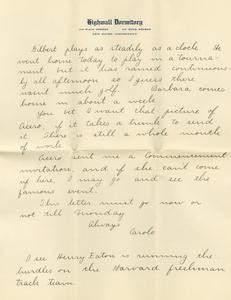 Highwall Dormitory
New Haven, Connecticut
Gilbert plays as steadily as a clock. He
went home today to play in a tourna-
ment but it has rained continuous-
ly all afternoon so I guess there
wasn't much golf. Barbara comes
home in about a week.
You bet I want that picture of
Aero, if it takes a trunk to send
it. There is still a whole month
of work.
Aero sent me a Commencement
invitation, and if she can't come
up here, I may go and see the
famous event.
This letter must go now or
not till Monday
Always
Carole
I see Henry Eaton is running the
hurdles on the Harvard freshman
track team.